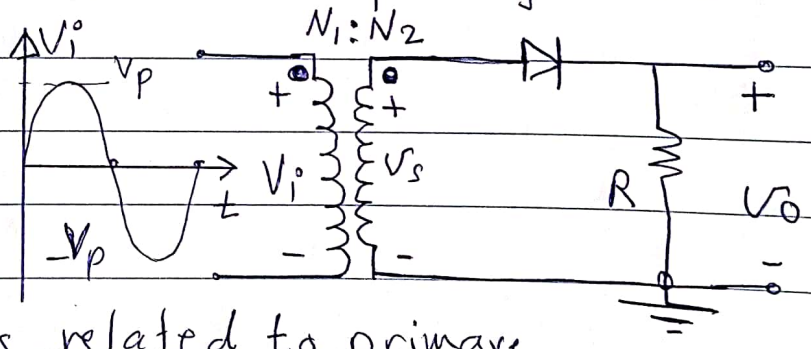 Vi
Vp
N1:N2
+
+
+
Vi
Vs
R
Vo
t
-Vp
-
-
-
related to primary